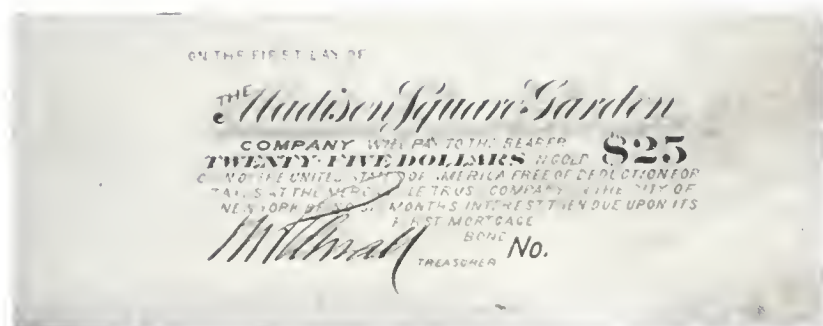 ON THE FIRST DAY OF
THE Madison Square Garden
COMPANY WILL PAY TO THE BEARER
TWENTY-FIVE DOLLARS IN GOLD $25
COIN OF THE UNITED STATES OF AMERICA FREE OF DEDUCTION FOR
TAXES AT THE MERCANTILE TRUST COMPANY IN THE CITY OF
NEW YORK BEING SIX MONTHS INTEREST THEN DUE UPON ITS
FIRST MORTGAGE
BOND No.
TREASURER